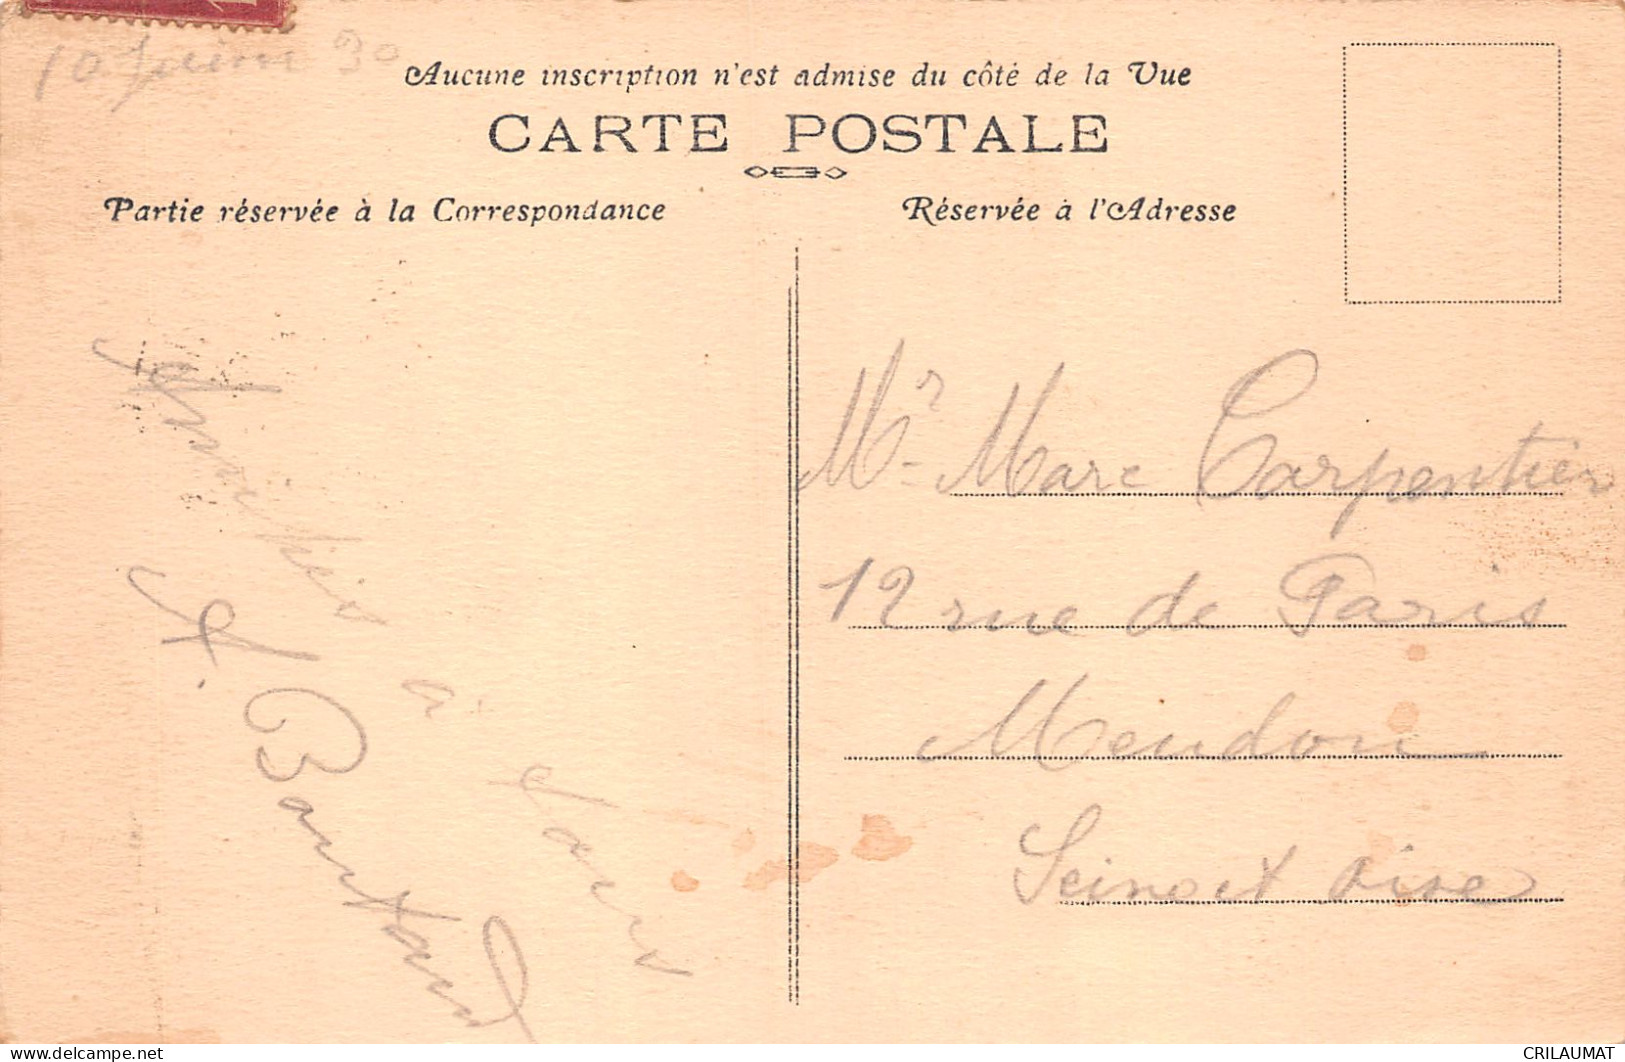 Aucune inscription n'est admise du côté de la Vue
CARTE POSTALE
Partie réservée à la Correspondance
Réservée à l'Adresse
10 30
Amitiés à tous
A.
Mr Marc Carpentier
12 rue de Paris
Meudon
Seine et Oise
CRILAUMAT